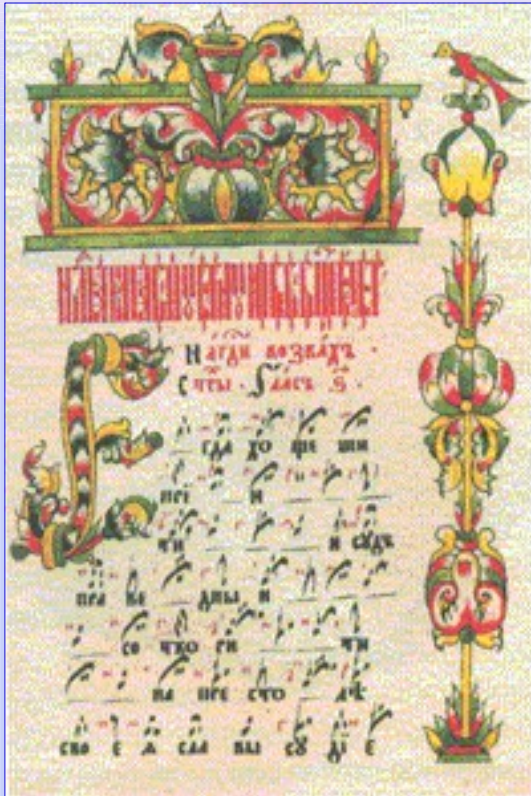 На гди возвахъ ·
с̾тчы · Гласъ ѕ ·
Е гда хо ще ши
прї и
ти и судъ
пра ве дныи
со тво ри ти
на пре сто лѣ
сво е ѧ сла вы су дї е